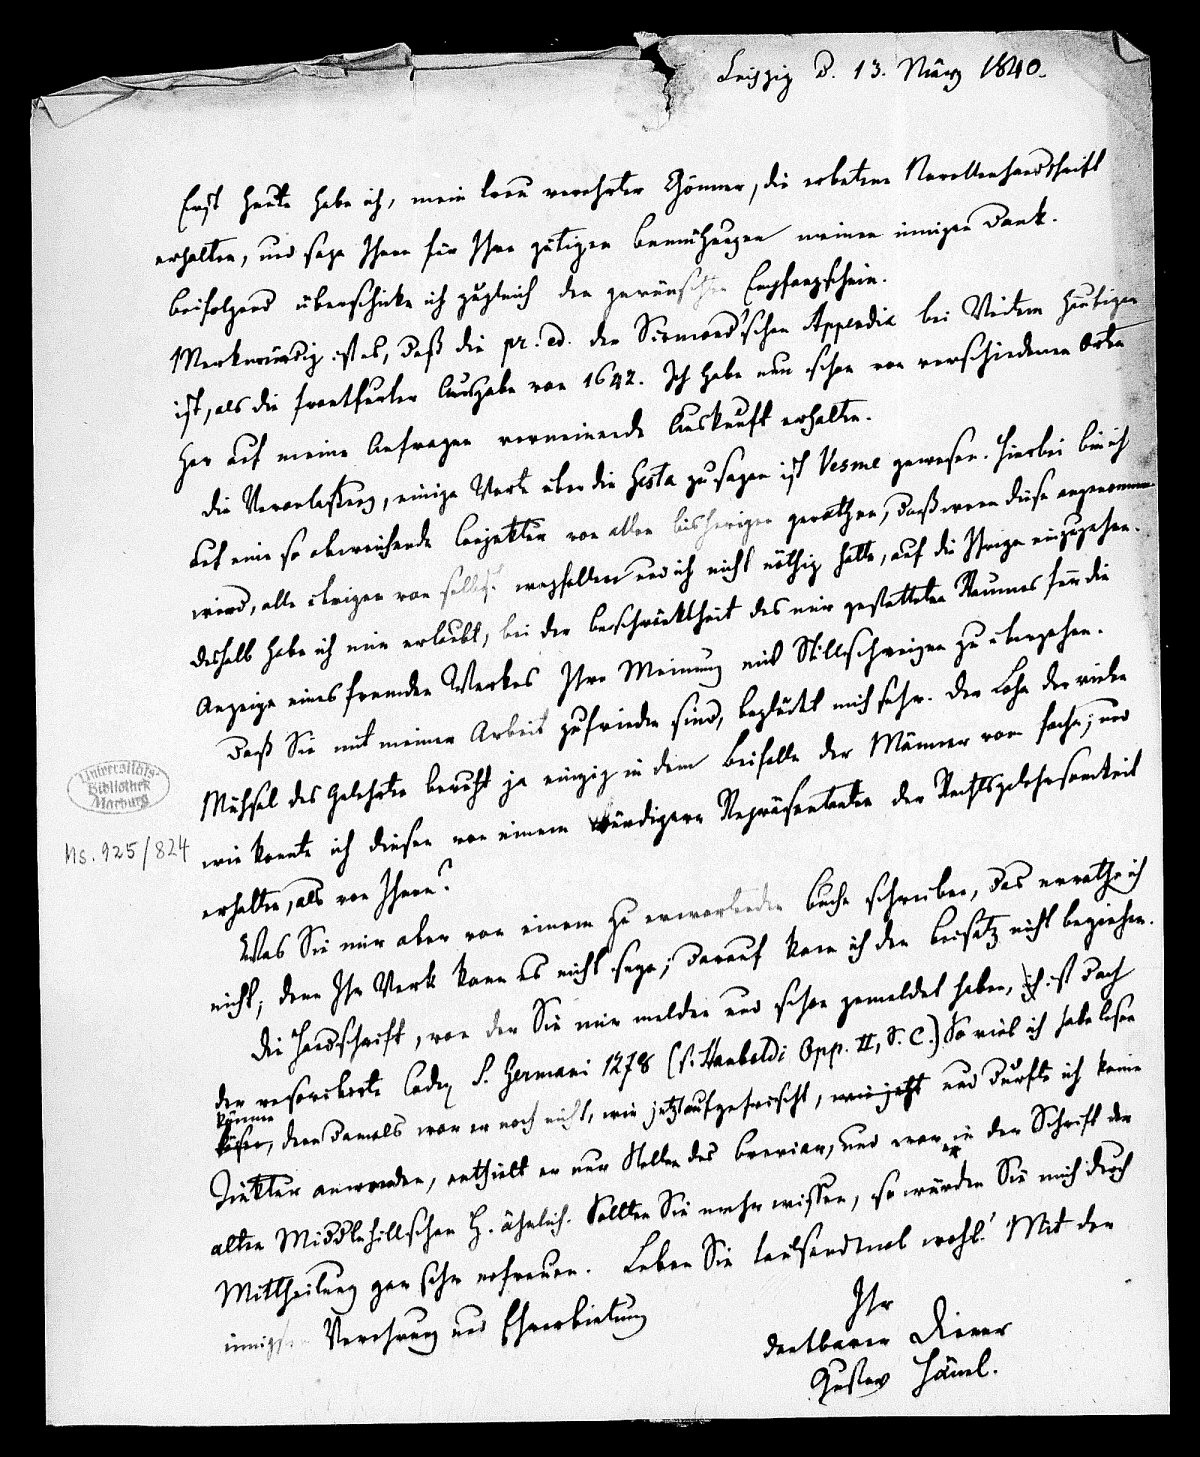 Leipzig d. 13. März 1840.
Erst heute habe ich, mein verehrter Gönner, die erbetene Novellenhandschrift
erhalten, und sage Ihnen für Ihre gütigen Bemühungen meinen innigen Dank.
Beifolgend überschicke ich zugleich den gewünschten Empfangschein.
Merkwürdig ist es, daß die pr. ed. der Sirmond'schen Appendix bei Weitem häufiger
ist, als die Frankfurter Ausgabe von 1642. Ich habe nun schon von verschiedenen Orten
her auf meine Anfragen verneinende Auskunft erhalten.
Die Veranlassung, einige Worte über die Gesta zu sagen ist Vesme gewesen. Hierbei bin ich
auf eine so abweichende Conjektur von allen bisherigen gerathen, daß wenn diese angenommen
wird, alle übrigen von selbst wegfallen und ich nicht nöthig hatte, auf die Ihrige einzugehen.
Deshalb habe ich mir erlaubt, bei der Beschränktheit des mir gestatteten Raumes für die
Anzeige eines fremden Werkes Ihre Meinung mit Stillschweigen zu übergehen.
Daß Sie mit meiner Arbeit zufrieden sind, beglückt mich sehr. Der Lohn der vielen
Mühsal des Gelehrten beruht ja einzig in dem Beifalle der Männer vom Fache; und
wie konnte ich diesen von einem würdigern Repräsentanten der Rechtsgelehrsamkeit
erhalten, als von Ihnen?
Was Sie mir aber von einem zu erwartenden Buche schreiben, das errathe ich
nicht; denn Ihr Werk kann es nicht sein; darauf kann ich den Beisatz nicht beziehen.
Die Handschrift, von der Sie mir melden und schon gemeldet haben, ist doch
der rescribirte Codex S. Germani 1278 (s. Hauboldi Opp. II, S. C.) So viel ich habe lesen
können
, denn damals war er noch nicht, wie jetzt aufgefrischt, wie jetzt und durfte ich keine
Tinktur anwenden, enthielt er nur Stellen des Breviar, und war er in der Schrift der
alten Middlehillschen H. ähnlich. Sollten Sie mehr wissen, so würden Sie mich durch
Mittheilung gar sehr erfreuen. Leben Sie tausendmal wohl! Mit der
innigsten Verehrung und Ehrerbietung
Ihr
dankbarer Diener
Gustav Hänel.
Universitäts-
Bibliothek
Marburg
Ms. 925/824